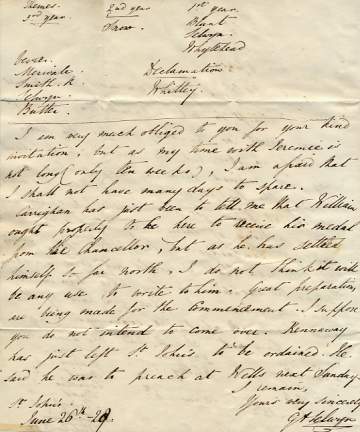 Themes. 2nd year 1st year.
3rd year. Snow. Blunt
Selwyn
Whytehead
Merivale Declamation
Smith. K Whitley.
Selwyn.
Butter.
I am very much obliged to you for your kind
invitation, but as my time with Serence is
not long (only ten weeks), I am afraid that
I shall not have many days to spare.
Carrighan has just been to tell me that William
ought properly to be here to receive his medal
from the Chancellor, but as he has settled
himself so far north, I do not think it will
be any use to write to him. Great preparations
are being made for the Commencement. I suppose
you do not intend to come over. Kennaway
has just left St John's to be ordained. He
said he was to preach at Wells next Sunday.
I remain,
Yours very sincerely
G A Selwyn
St John's.
June 26th - 28.